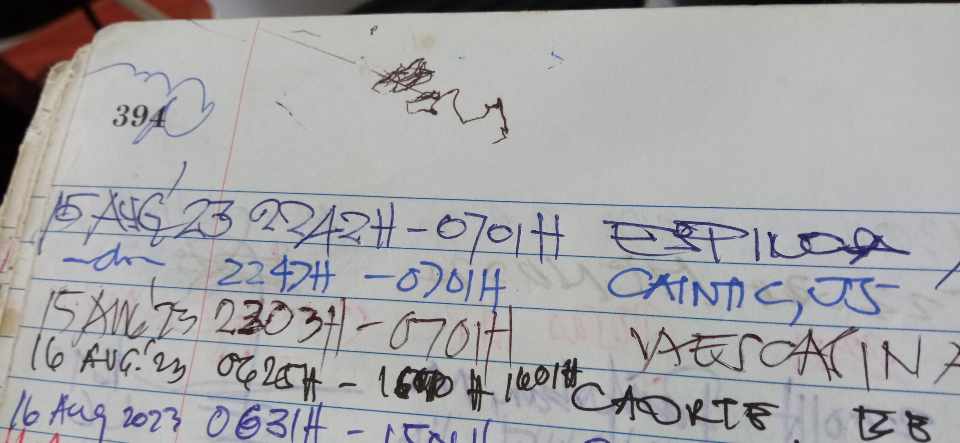 394
15 AUG '23 2242H - 0701H ESPINOSA
-do- 2247H - 0701H CAINTIC, JS
15 AUG '23 2303H - 0701H
16 AUG. '23 0625H - 1601H CAORTE EB
16 Aug 2023 0631H -